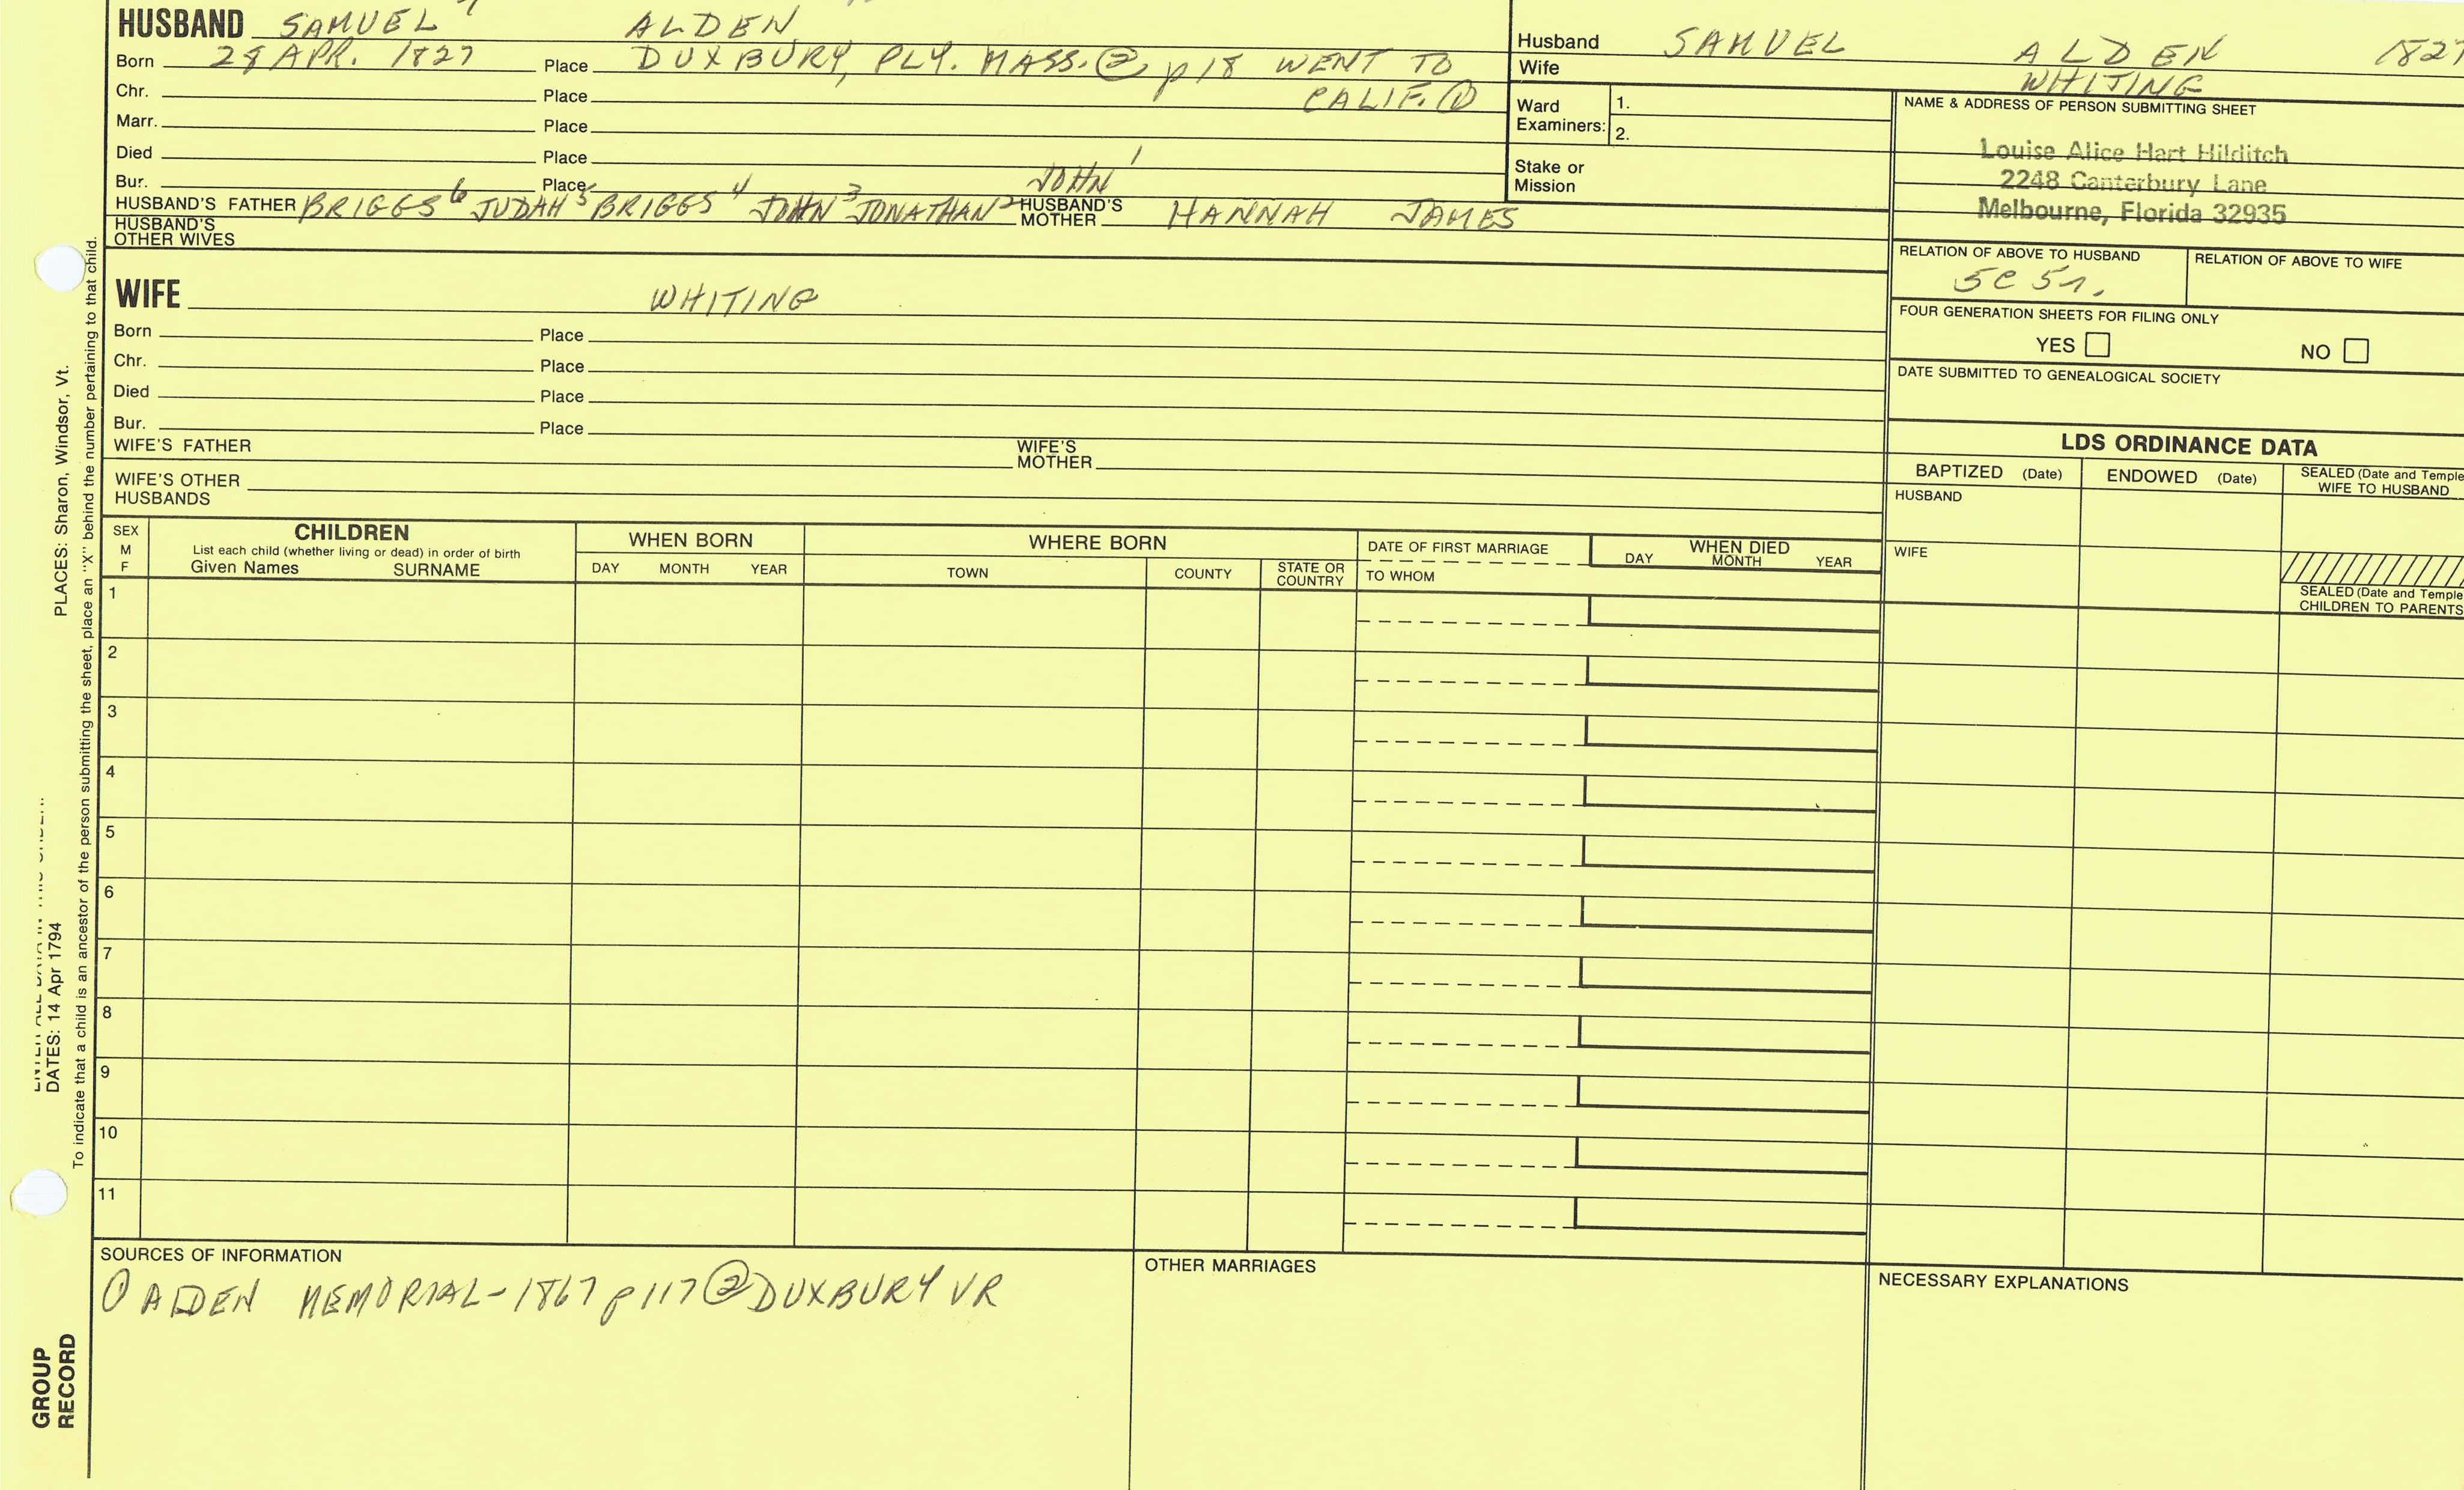 HUSBAND SAMUEL 7 ALDEN
Born 28 APR. 1827 Place DUXBURY, PLY. MASS. ② p18 WENT TO
CALIF. ①
Chr. Place
Marr. Place
Died Place
Bur. Place
HUSBAND'S FATHER BRIGGS 6 JUDAH 5 BRIGGS 4 JOHN 3 JONATHAN 2 JOHN 1 HUSBAND'S MOTHER HANNAH JAMES
HUSBAND'S
OTHER WIVES
WIFE WHITING
Born Place
Chr. Place
Died Place
Bur. Place
WIFE'S FATHER WIFE'S MOTHER
WIFE'S OTHER
HUSBANDS
Husband SAMUEL ALDEN 1827
Wife WHITING
Ward
Examiners: 1.
2.
Stake or
Mission
NAME & ADDRESS OF PERSON SUBMITTING SHEET
Louise Alice Hart Hilditch
2248 Canterbury Lane
Melbourne, Florida 32935
RELATION OF ABOVE TO HUSBAND RELATION OF ABOVE TO WIFE
5C 5r.
FOUR GENERATION SHEETS FOR FILING ONLY
YES NO
DATE SUBMITTED TO GENEALOGICAL SOCIETY
LDS ORDINANCE DATA
BAPTIZED (Date) ENDOWED (Date) SEALED (Date and Temple
WIFE TO HUSBAND
HUSBAND
WIFE
SEALED (Date and Temple
CHILDREN TO PARENTS
SEX
M
F
CHILDREN
List each child (whether living or dead) in order of birth
Given Names SURNAME
WHEN BORN
DAY MONTH YEAR
WHERE BORN
TOWN COUNTY STATE OR
COUNTRY
DATE OF FIRST MARRIAGE
TO WHOM
WHEN DIED
DAY MONTH YEAR
1
2
3
4
5
6
7
8
9
10
11
SOURCES OF INFORMATION
① ALDEN MEMORIAL-1867 p117 ② DUXBURY VR
OTHER MARRIAGES
NECESSARY EXPLANATIONS
PLACES: Sharon, Windsor, Vt.
DATES: 14 Apr 1794
To indicate that a child is an ancestor of the person submitting the sheet, place an "X" behind the number pertaining to that child.
GROUP
RECORD